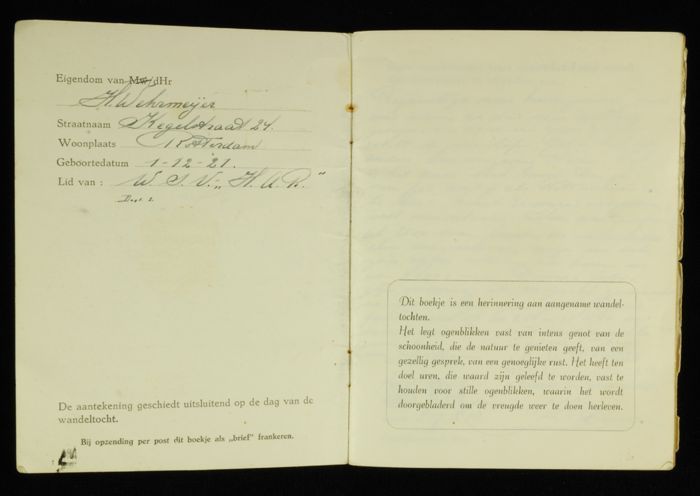 Eigendom van Mw/dHr
H. Wehrmeijer
Straatnaam Kegelstraat 24.
Woonplaats Rotterdam
Geboortedatum 1-12-21.
Lid van : W. S. V. „H. A. R."
De aantekening geschiedt uitsluitend op de dag van de
wandeltocht.
Bij opzending per post dit boekje als „brief" frankeren.
Dit boekje is een herinnering aan aangename wandel-
tochten.
Het legt ogenblikken vast van intens genot van de
schoonheid, die de natuur te genieten geeft, van een
gezellig gesprek, van een genoeglijke rust. Het heeft ten
doel uren, die waard zijn geleefd te worden, vast te
houden voor stille ogenblikken, waarin het wordt
doorgebladerd om de vreugde weer te doen herleven.